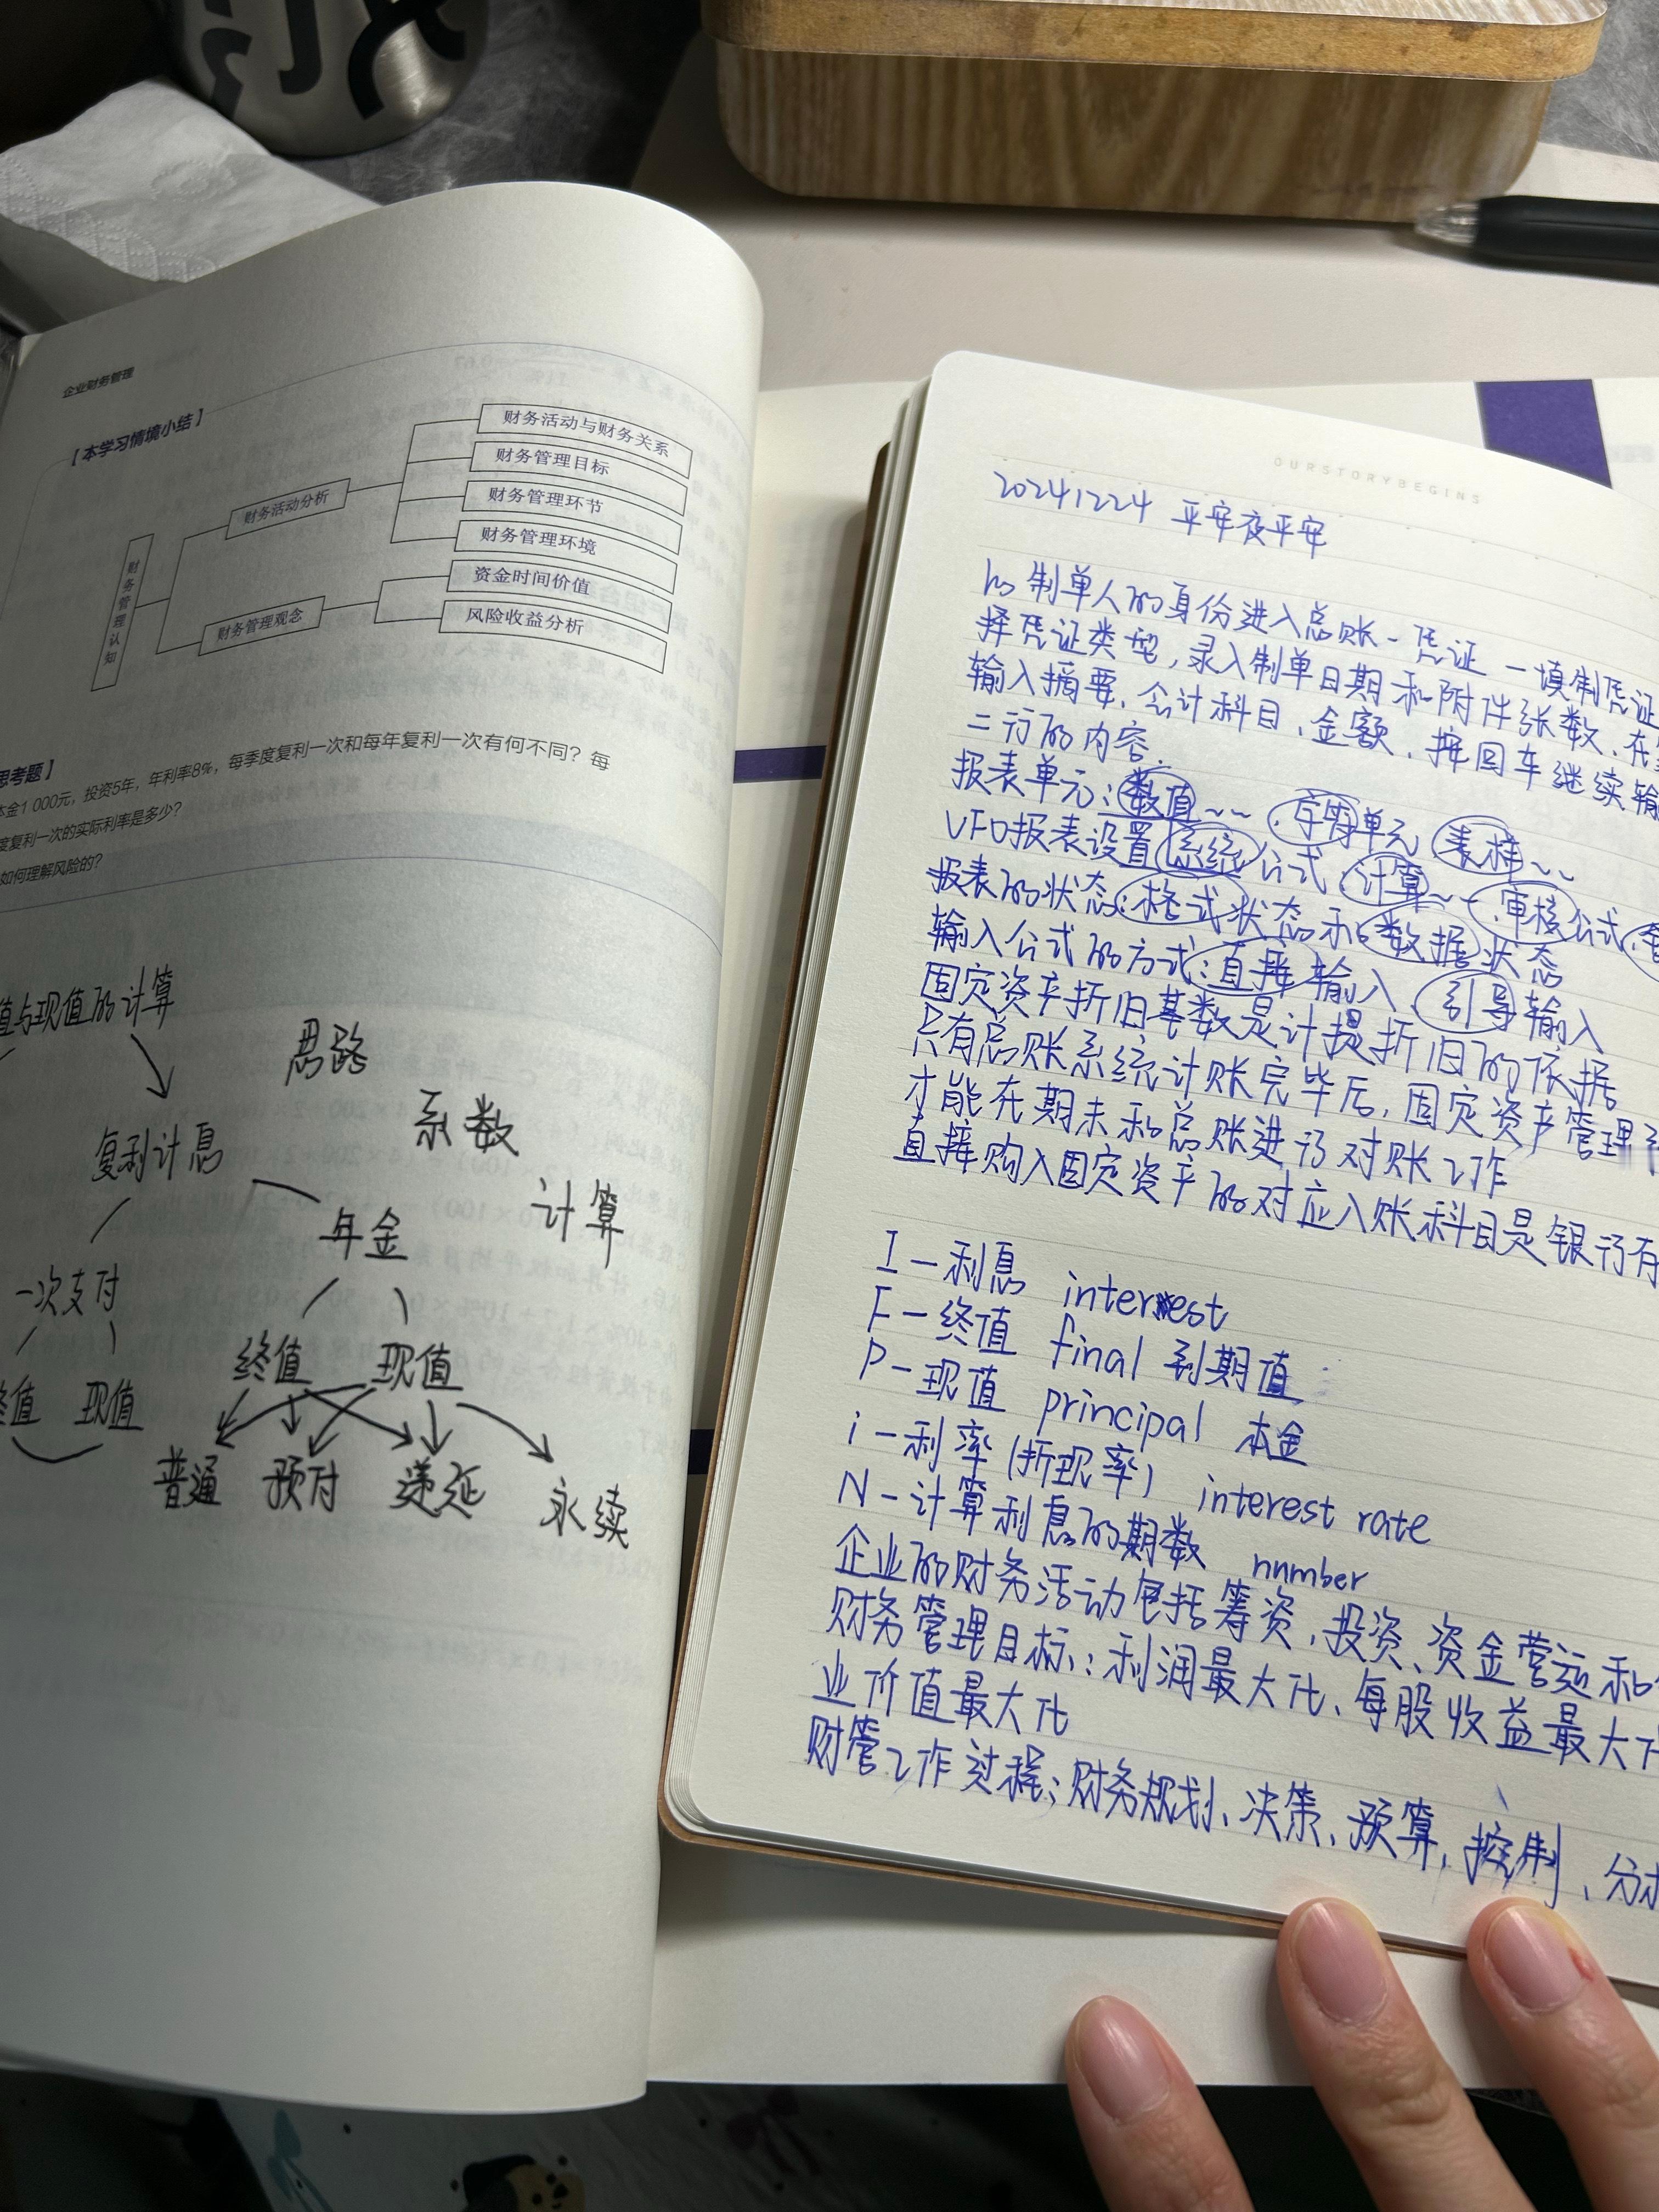 企业财务管理
【本学习情境小结】
财务管理认知
财务活动分析
财务活动与财务关系
财务管理目标
财务管理环节
财务管理环境
财务管理观念
资金时间价值
风险收益分析
思考题】
本金1 000元，投资5年，年利率8%，每季度复利一次和每年复利一次有何不同？每
度复利一次的实际利率是多少？
如何理解风险的？
值与现值的计算
思路
系数
计算
复利计息
年金
一次支付
终值 现值
终值 现值
普通 预付 递延 永续
OURSTORYBEGINS
20241224 平安夜平安
以制单人的身份进入总账-凭证-填制凭证
择凭证类型,录入制单日期和附件张数.在
输入摘要.会计科目.金额.按回车继续输
二行的内容.
报表单元:数值~~ .字符单元 表样~~
UFO报表设置 系统公式 计算~~ .审核公式.
报表的状态:格式状态和数据状态
输入公式的方式:直接输入、引导输入
固定资产折旧基数是计提折旧的依据
只有总账系统计账完毕后,固定资产管理
才能在期末和总账进行对账工作
直接购入固定资产的对应入账科目是银行存
I-利息 interest
F-终值 final 到期值
P-现值 principal 本金
i-利率(折现率) interest rate
N-计算利息的期数 nnmber
企业的财务活动包括筹资,投资、资金营运和
财务管理目标:利润最大化、每股收益最大化
业价值最大化
财管工作过程:财务规划、决策、预算,控制、分析